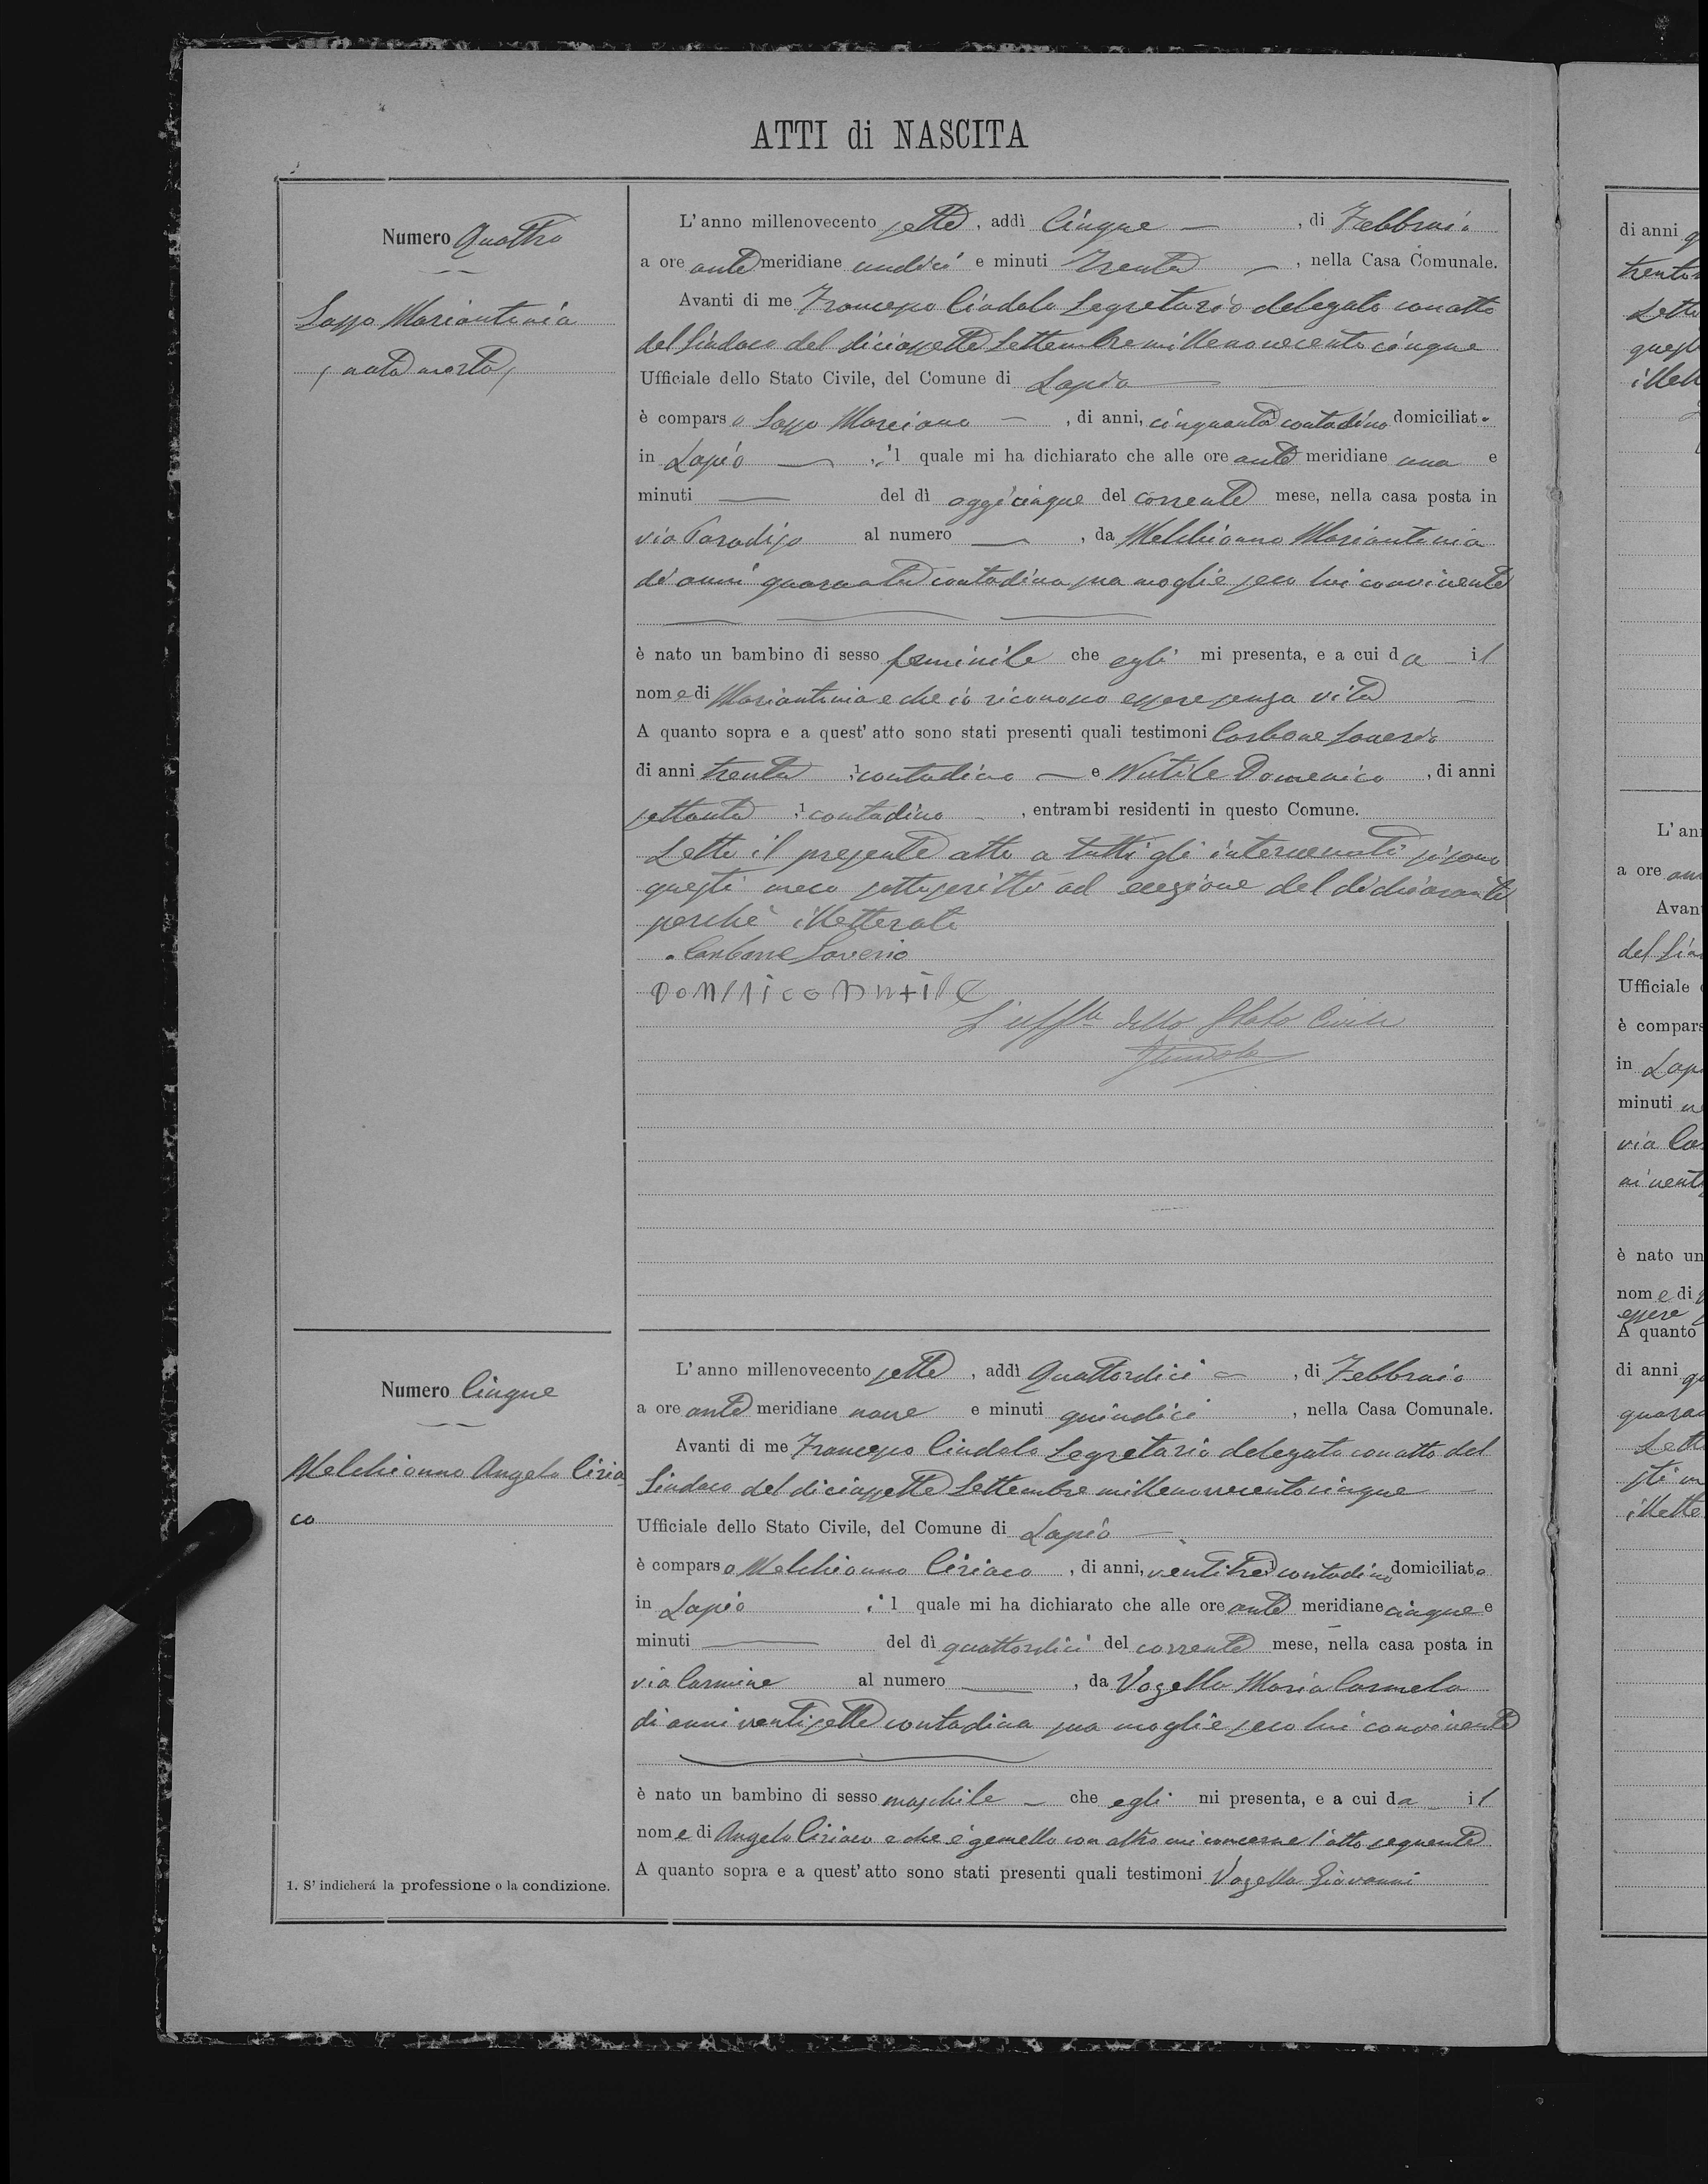 ATTI di NASCITA
Numero Quattro
Sasso Mariantonia
(nata morta)
L'anno millenovecento sette, addì Cinque —, di Febbraio
a ore antemeridiane undici e minuti Trenta —, nella Casa Comunale.
Avanti di me Francesco Cindolo Segretario delegato con atto
del Sindaco del diciassette Settembre millenovecentocinque
Ufficiale dello Stato Civile, del Comune di Lapio —
è comparso Sasso Marciano —, di anni, cinquanta contadino domiciliato
in Lapio —, il quale mi ha dichiarato che alle ore ante meridiane una e
minuti — del dì oggi cinque del corrente mese, nella casa posta in
via Paradiso al numero —, da Melchionno Mariantonia
di anni quaranta contadina sua moglie seco lui convivente
è nato un bambino di sesso feminile che egli mi presenta, e a cui da il
nome di Mariantonia e che io riconosco essere senza vita —
A quanto sopra e a quest'atto sono stati presenti quali testimoni Carbone Saverio
di anni trenta 1 contadino — e Nutile Domenico, di anni
settanta 1 contadino -, entrambi residenti in questo Comune.
Letto il presente atto a tutti gli intervenuti si sono
questi meco sottoscritti ad eccezione del dichiarante
perchè illetterato
Carbone Saverio
L'uff.le dello Stato Civile
FCindolo
Numero Cinque
Melchionno Angelo Ciria-
co
L'anno millenovecento sette, addì Quattordici —, di Febbraio
a ore ante meridiane nove e minuti quindici, nella Casa Comunale.
Avanti di me Francesco Cindolo Segretario delegato con atto del
Sindaco del diciassette Settembre millenovecentocinque —
Ufficiale dello Stato Civile, del Comune di Lapio —
è comparso Melchionno Ciriaco, di anni, ventitre contadino domiciliato
in Lapio il quale mi ha dichiarato che alle ore ante meridiane cinque e
minuti — del dì quattordici del corrente mese, nella casa posta in
via Carmine al numero —, da Vozella Maria Carmela
di anni ventisette contadina sua moglie seco lui convivente
è nato un bambino di sesso maschile — che egli mi presenta, e a cui da il
nome di Angelo Ciriaco e che è gemello con altro cui concerne l'atto seguente
A quanto sopra e a quest'atto sono stati presenti quali testimoni Vozella Giovanni
1. S'indicherá la professione o la condizione.
di anni
Letto
L'an
a ore
Avan
del Sin
Ufficiale
è compars
in Lapi
minuti
via Ca
è nato un
nome di
essere
A quanto
di anni